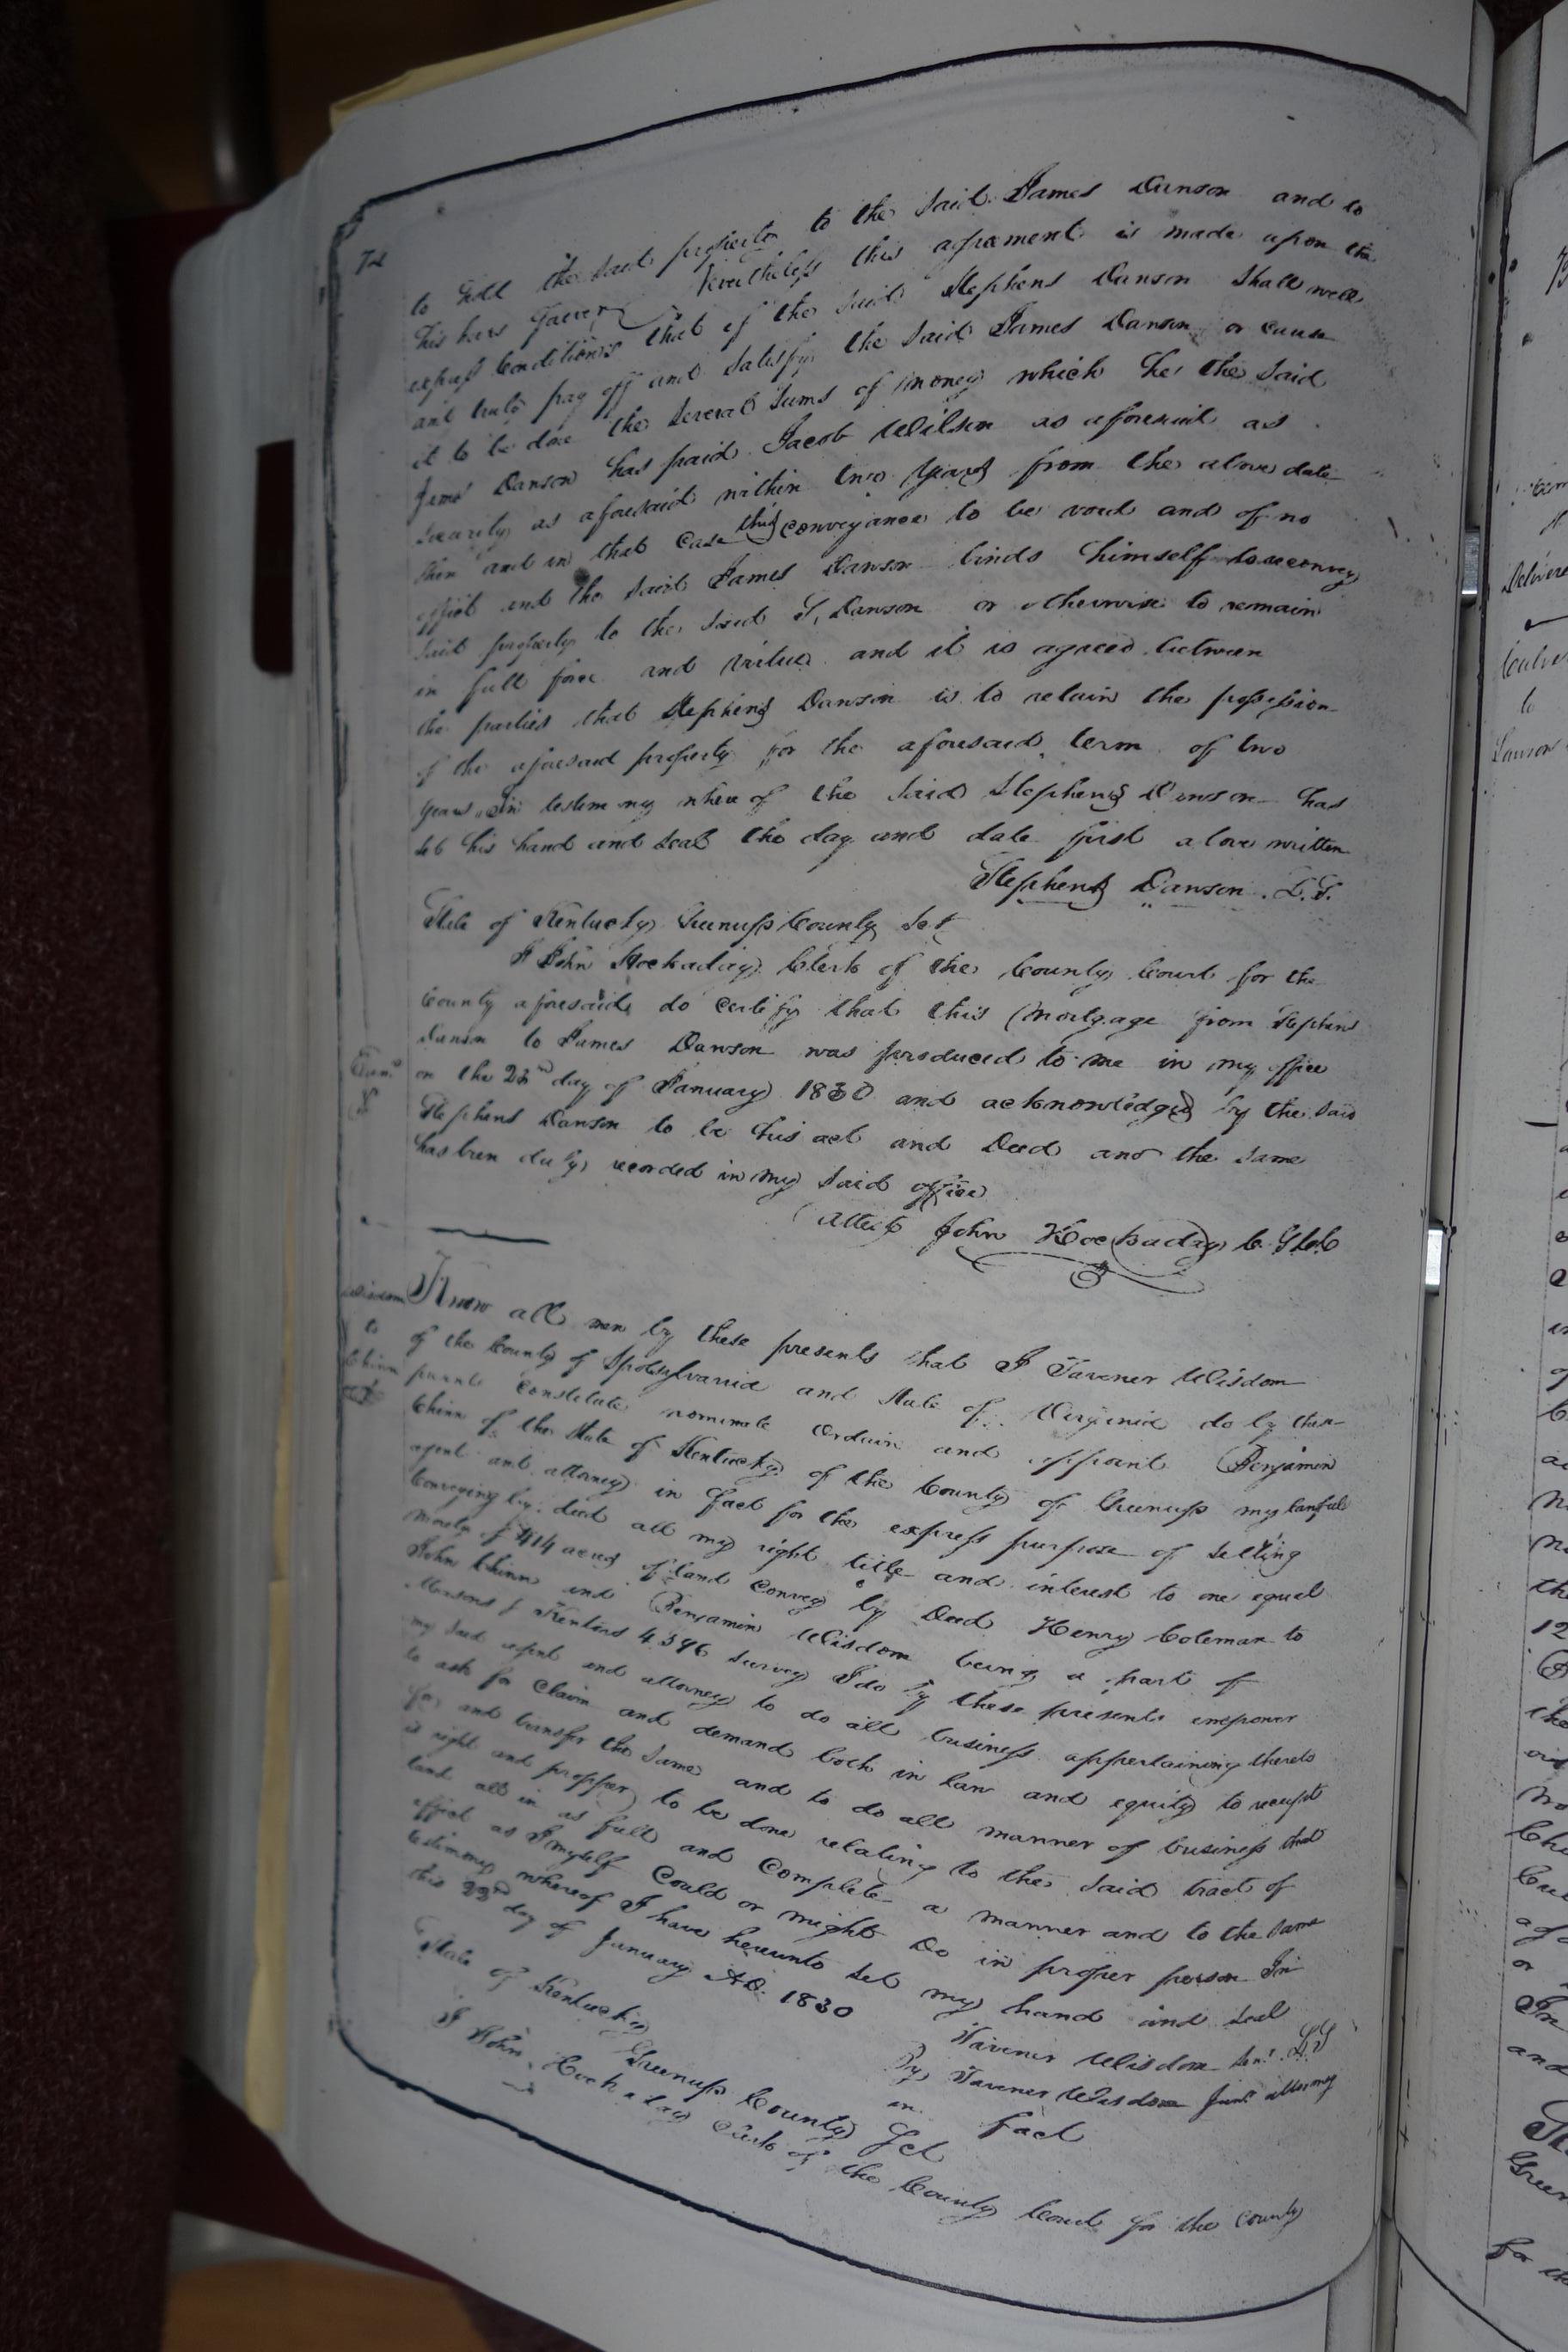 72
to hold the said property to the said James Dawson and to
his heirs Nevertheless this agreement is made upon the
express Conditions that if the said Stephens Dawson Shall well
and truly pay off and Satisfy the Said James Dawson or cause
it to be done the Several Sums of money which he the Said
James Dawson has paid Jacob Wilson as aforesaid as
Security as aforesaid within two years from the above date
then and in that Case this conveyance to be void and of no
effect and the Said James Dawson binds himself to reconvey
said property to the Said S. Dawson or otherwise to remain
in full force and virtue and it is agreed between
the parties that Stephens Dawson is to retain the possession
of the aforesaid property for the aforesaid term of two
years In testimony where of the Said Stephens Dawson has
set his hand and Seal the day and date first above written
Stephens Dawson L.S.
State of Kentucky Greenup County Sct
I John Hockaday Clerk of the County Court for the
County aforesaid do certify that this Mortgage from Stephens
Dawson to James Dawson was produced to me in my office
on the 23rd day of January 1830 and acknowledged by the Said
Stephens Dawson to be his act and Deed and the Same
has been duly recorded in my Said office
Attest John Hockaday C. G C C
Wisdom
to
Chinn
Know all men by these presents that I Tavener Wisdom
of the County of Spotsylvania and State of Virginia do by these
presents Constitute nominate Ordain and appoint Benjamin
Chinn of the State of Kentucky of the County of Greenup my lawful
agent and attorney in fact for the express purpose of Selling
Conveying by deed all my right title and interest to one equal
moiety of 414 acres of land Convey by Deed Henry Coleman to
John Chinn and Benjamin Wisdom being a part of
4396 Survey I do by these presents empower
my said agent and attorney to do all business appertaining thereto
to ask for Claim and demand both in law and equity to receipt
for and transfer the Same and to do all manner of business that
is right and propper to be done relating to the Said tract of
land all in as full and Complete a manner and to the Same
effect as I myself Could or might Do in proper person In
testimony whereof I have hereunto Set my hand and Seal
this 22nd day of January A.D. 1830
Tavener Wisdom Senr. LS
By Tavener Wisdom Junr attorney
in fact
State of Kentucky Greenup County Sct
I John Hockaday Clerk of the County Court for the County